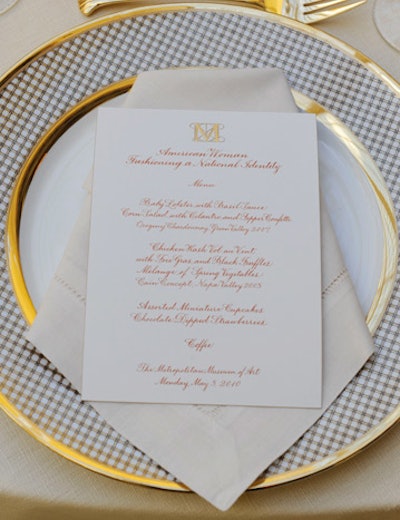 M
American Woman
Fashioning a National Identity
Menu
Baby Lobster with Basil Sauce
Corn Salad with Cilantro and Pepper Confetti
Chardonnay, Green Valley 2007
Chicken Hash Vol au Vent
with Foie Gras and Black Truffles
Mélange of Spring Vegetables
Cain Concept, Napa Valley 2005
Assorted Miniature Cupcakes
Chocolate Dipped Strawberries
Coffee
The Metropolitan Museum of Art
Monday, May 3, 2010